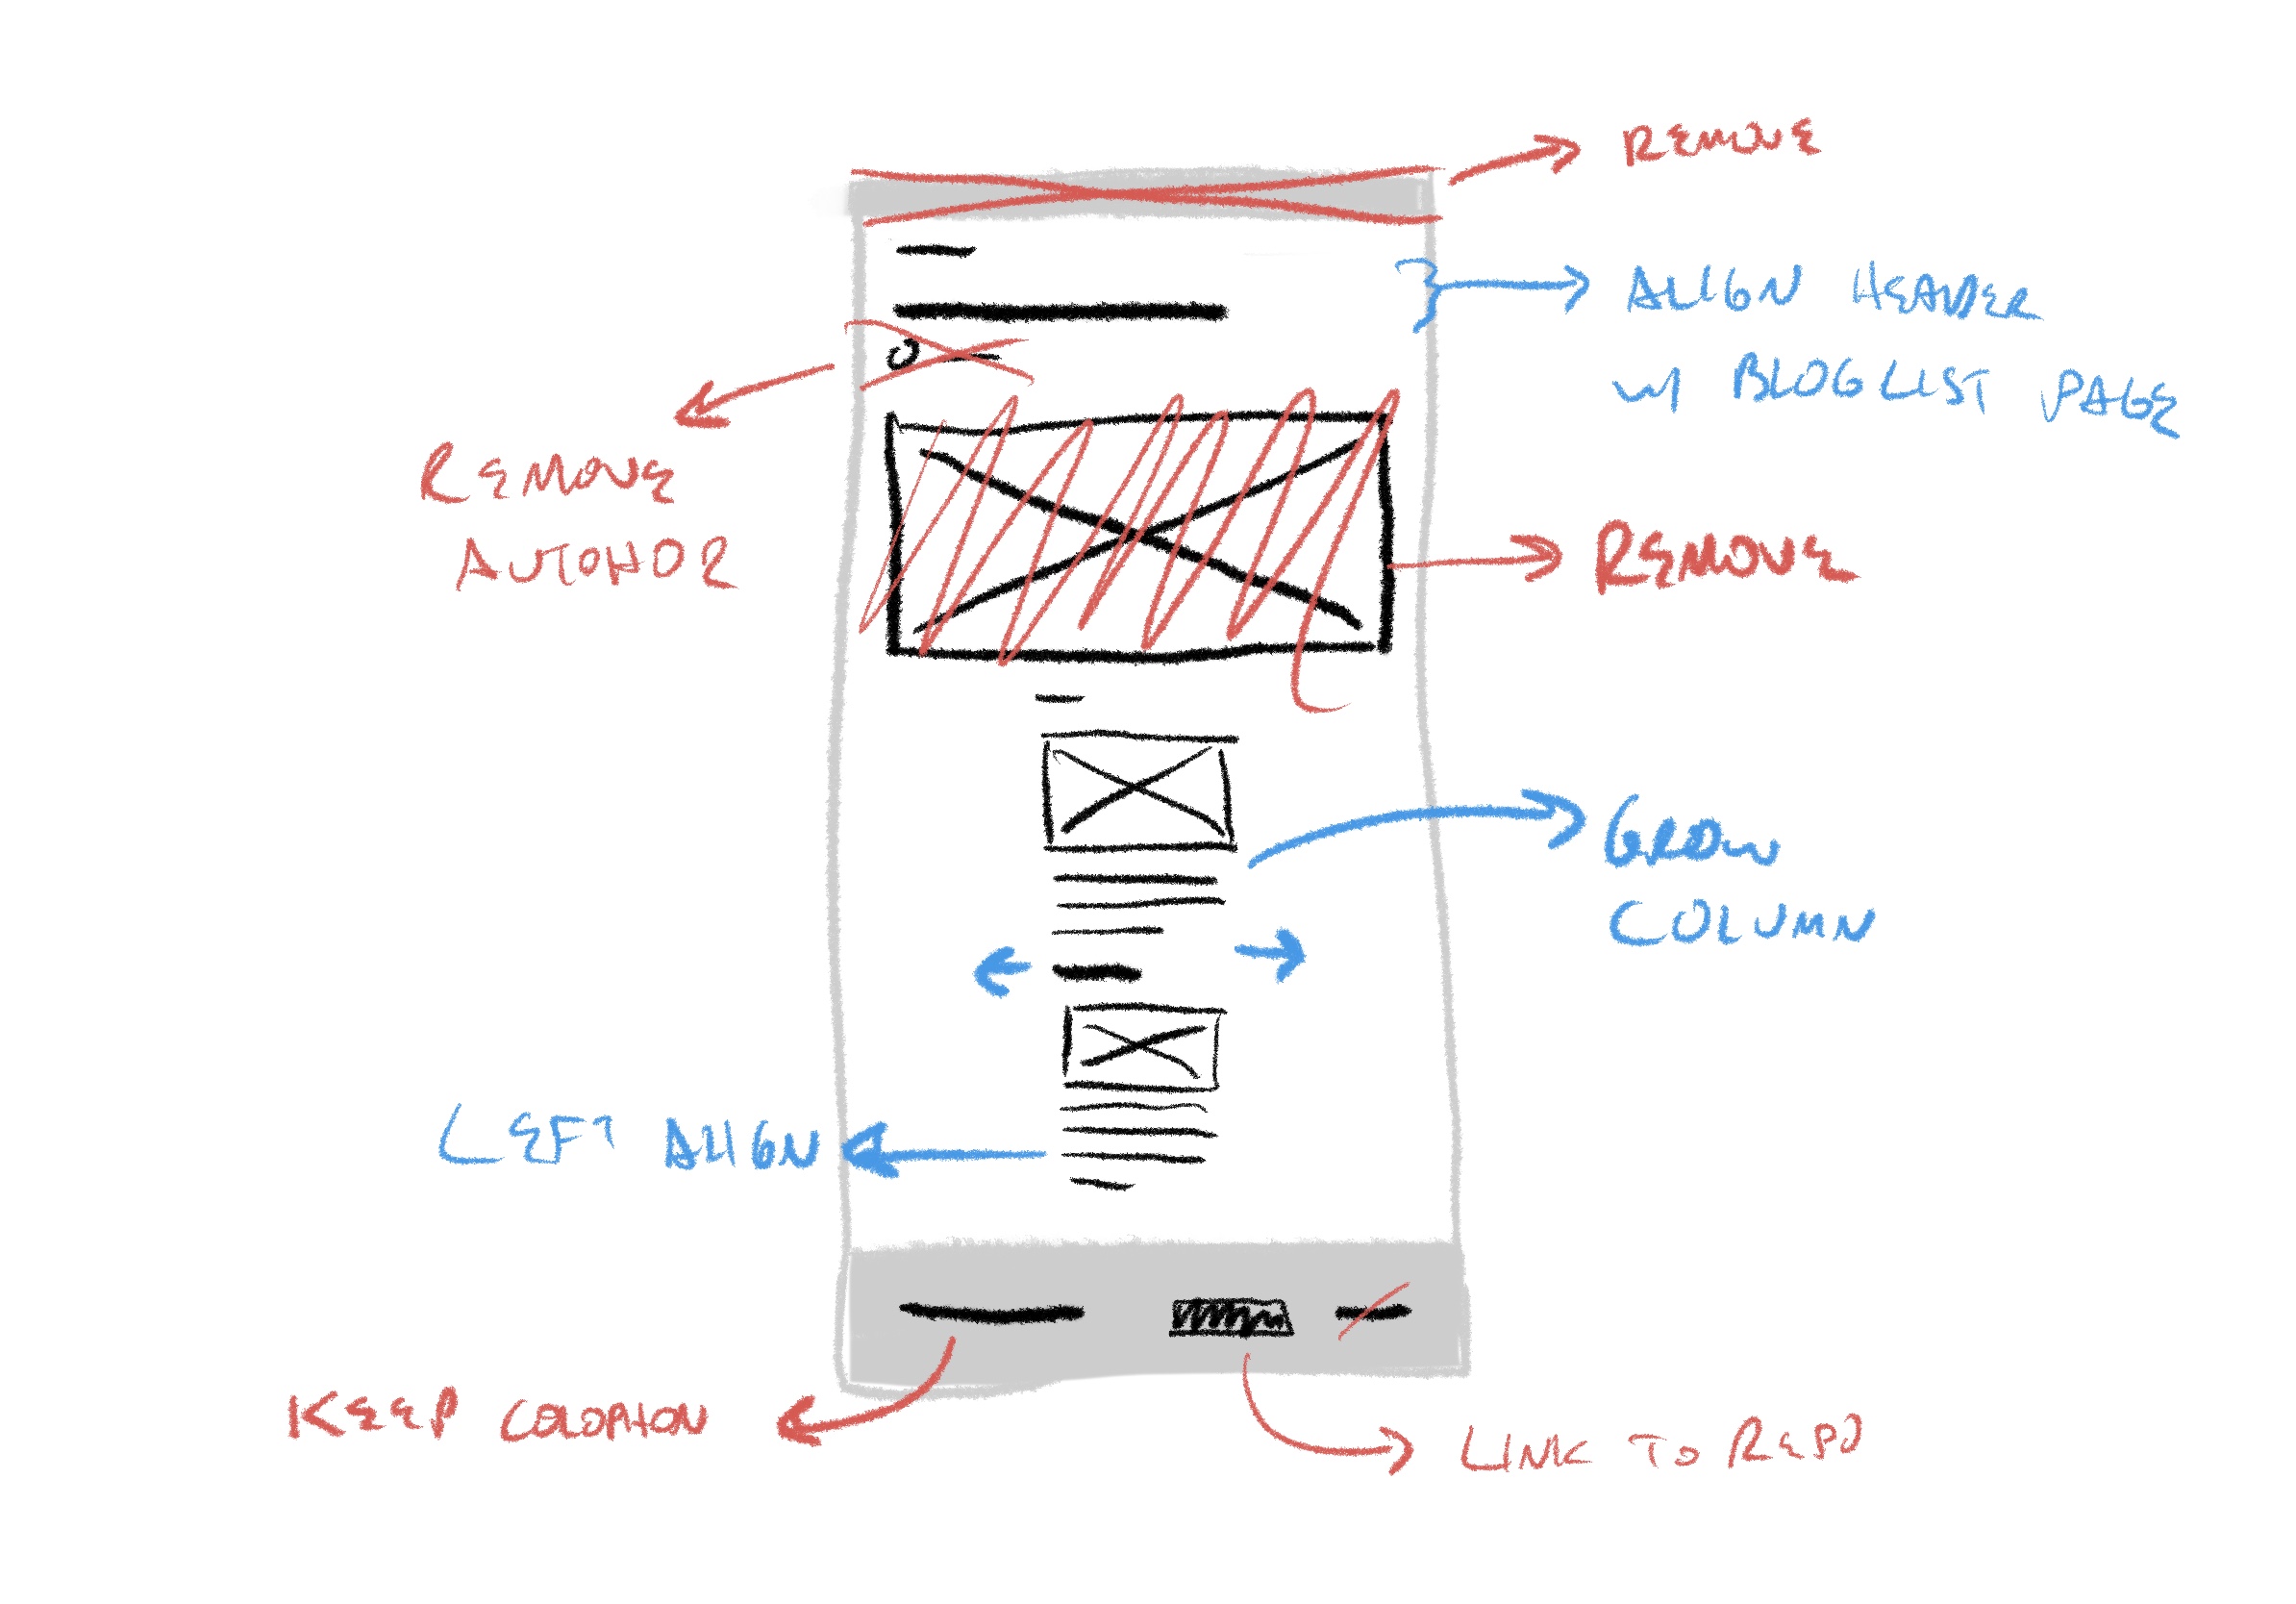 REMOVE
ALIGN HEADER
W/ BLOGLIST PAGE
REMOVE
AUTHOR
REMOVE
GROW
COLUMN
LEFT ALIGN
KEEP COLOPHON
LINK TO REPO